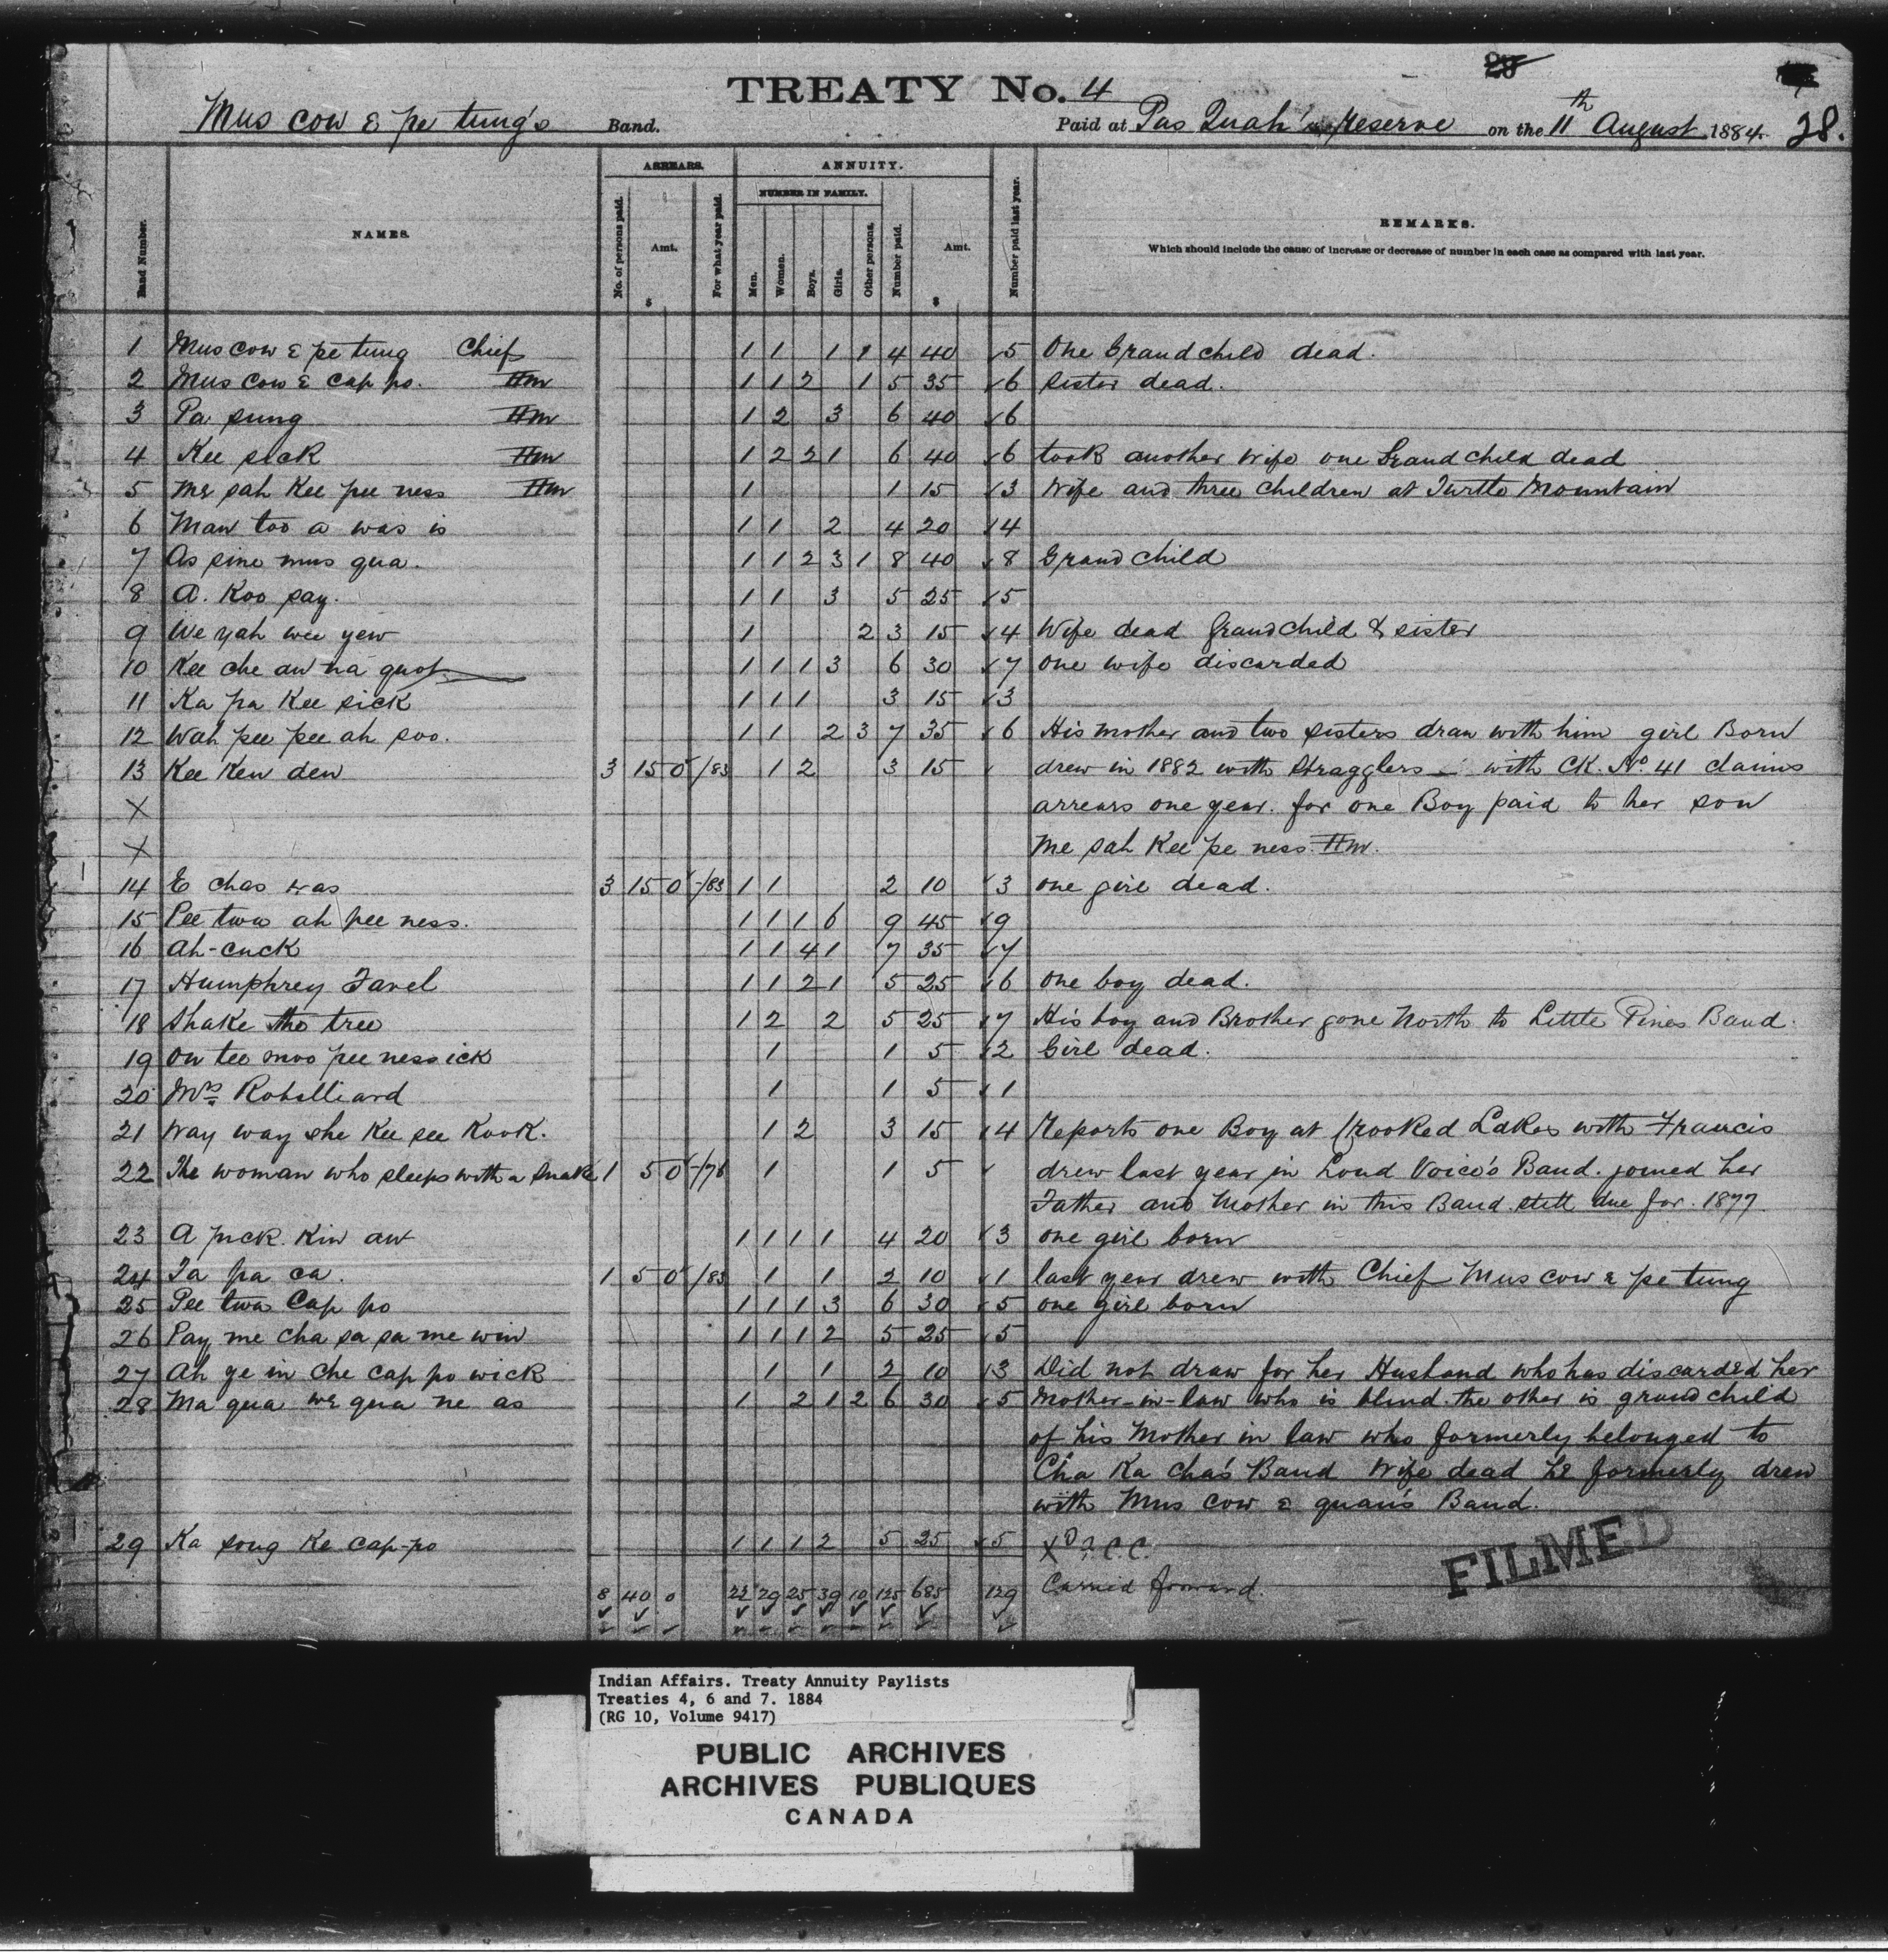 29
TREATY No. 4
Mus cow e pe tung's Band. Paid at Pas Quah's Reserve on the 11th August 1884. 28.
Band Number.
NAMES.
ARREARS.
No. of persons paid.
Amt.
$
For what year paid.
ANNUITY.
NUMBER IN FAMILY.
Men.
Women.
Boys.
Girls.
Other persons.
Number paid.
Amt.
$
Number paid last year.
REMARKS.
Which should include the cause of increase or decrease of number in each case as compared with last year.
1 Mus cow e pe tung Chief 1 1 1 1 4 40 5 One Grandchild dead.
2 Mus cow e cap po. Hm 1 1 2 1 5 35 6 Sister dead.
3 Pa sung Hm 1 2 3 6 40 6
4 Kee sick Hm 1 2 2 1 6 40 6 took another wife one Grandchild dead
5 Me sah Kee pee ness Hm 1 1 15 3 Wife and three children at Turtle Mountain
6 Man too a was is 1 1 2 4 20 4
7 As sine mus qua. 1 1 2 3 1 8 40 8 Grandchild
8 A. Koo say. 1 1 3 5 25 5
9 We yah wee yew 1 2 3 15 4 Wife dead Grandchild & sister
10 Kee che aw na quot 1 1 1 3 6 30 7 one wife discarded
11 Ka pa Kee sick 1 1 1 3 15 3
12 Wah pee pee ah soo. 1 1 2 3 7 35 6 His mother and two sisters draw with him girl Born
13 Kee Ken den 3 15 0 /83 1 2 3 15 drew in 1882 with Stragglers - with CK. No. 41 claims
X arrears one year. for one Boy paid to her son
X Me sah Kee pe ness. Hm.
14 E chas was 3 15 0 /83 1 1 2 10 3 one girl dead.
15 Pee twa ah pee ness. 1 1 1 6 9 45 9
16 Ah-cuck 1 1 4 1 7 35 7
17 Humphrey Favel 1 1 2 1 5 25 6 one boy dead.
18 Shake the tree 1 2 2 5 25 7 His boy and Brother gone North to Little Pines Band.
19 On tee moo pee ness ick 1 1 5 2 Girl dead.
20 Mrs Robilliard 1 1 5 1
21 Way way she Kee see Kook. 1 2 3 15 4 Reports one Boy at Crooked Lakes with Francis
22 The woman who sleeps with a snake 1 5 0 /76 1 1 5 drew last year in Loud Voice's Band. joined her
Father and Mother in this Band still due for 1877.
23 A puck Kin aw 1 1 1 1 4 20 3 one girl born
24 Ta pa ca. 1 5 0 /83 1 1 2 10 1 last year drew with Chief Mus cow e pe tung
25 Pee twa Cap po 1 1 1 3 6 30 5 one girl born
26 Pay me cha sa sa me win 1 1 1 2 5 25 5
27 Ah ye in che cap po wick 1 1 2 10 3 Did not draw for her Husband who has discarded her
28 Ma qua we qua ne as 1 2 1 2 6 30 5 Mother-in-law who is blind. the other is grandchild
of his Mother in law who formerly belonged to
Cha Ka cha's Band Wife dead he formerly drew
with Mus cow e quan's Band.
29 Ka song Ke cap-po 1 1 1 2 5 25 5
8 40 0 22 29 25 39 10 125 685 129 Carried forward.
FILMED
Indian Affairs. Treaty Annuity Paylists
Treaties 4, 6 and 7. 1884
(RG 10, Volume 9417)
PUBLIC ARCHIVES
ARCHIVES PUBLIQUES
CANADA